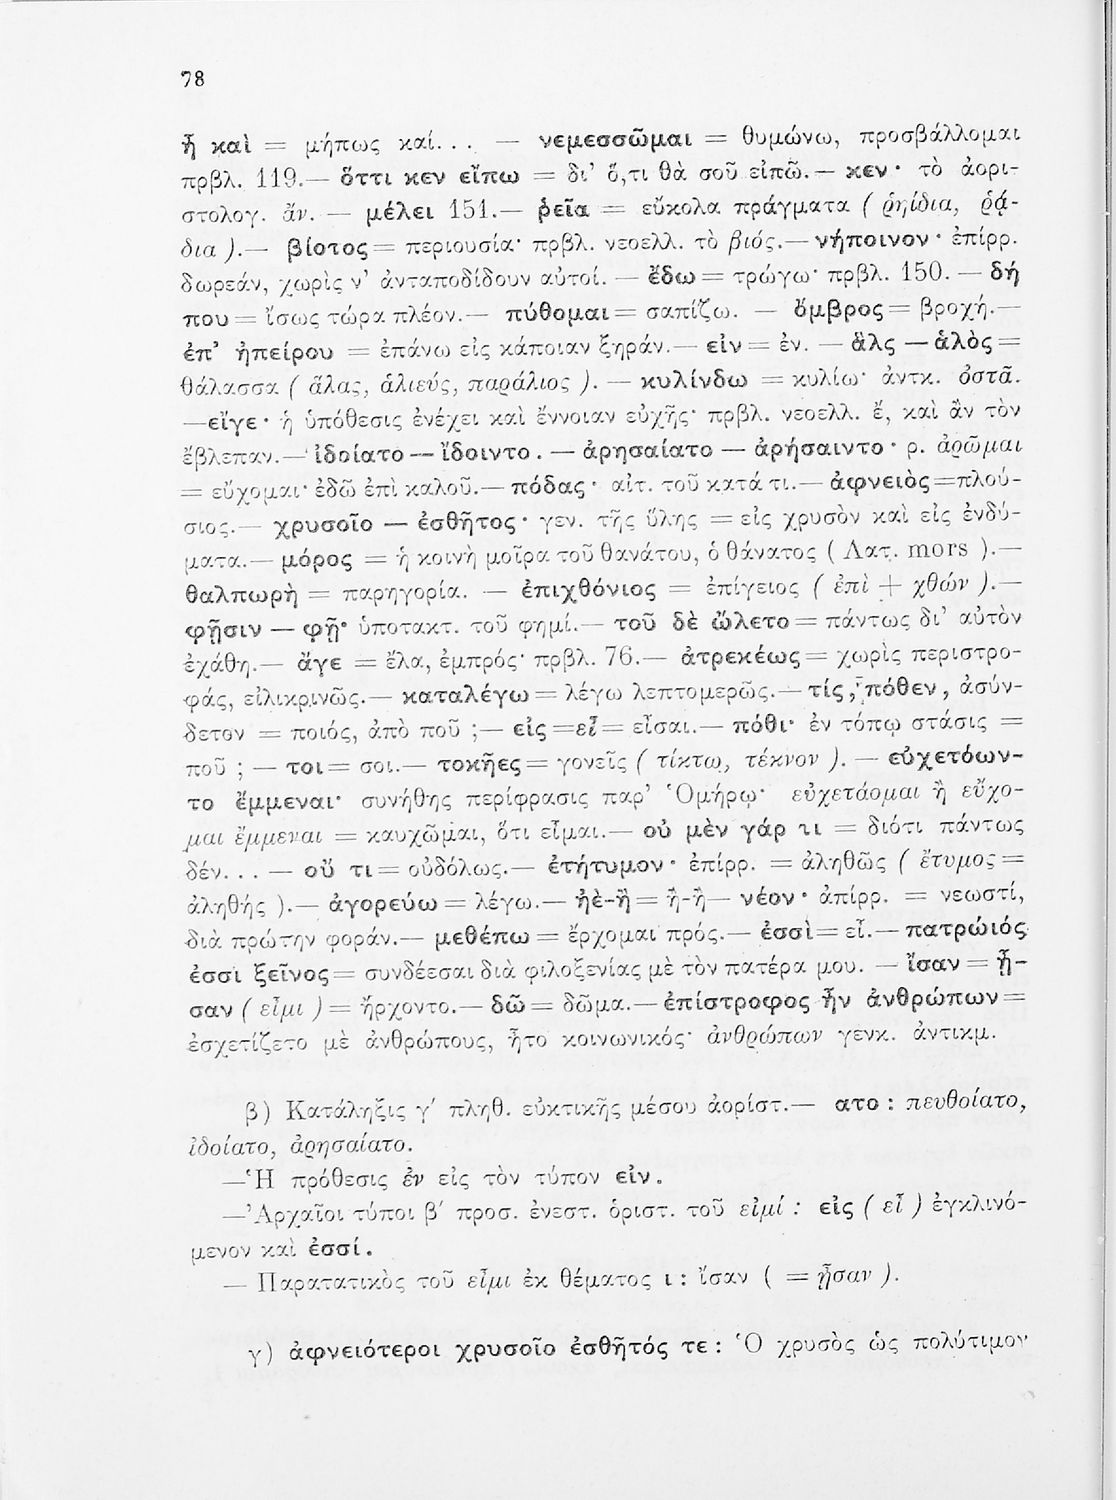 78
ἦ καὶ = μήπως καί. . . — νεμεσσῶμαι = θυμώνω, προσβάλλομαι
πρβλ. 119.— ὅττι κεν εἴπω = δι’ ὅ,τι θὰ σοῦ εἰπῶ.— κεν· τὸ ἀορι-
στολογ. ἄν. — μέλει 151.— ῥεῖα = εὔκολα πράγματα ( ῥηίδια, ῥᾴ-
δια ).— βίοτος = περιουσία· πρβλ. νεοελλ. τὸ βιός.— νήποινον· ἐπίρρ.
δωρεάν, χωρὶς ν’ ἀνταποδίδουν αὐτοί. — ἔδω = τρώγω· πρβλ. 150. — δή
που = ἴσως τώρα πλέον.— πύθομαι = σαπίζω. — ὄμβρος = βροχή.—
ἐπ’ ἠπείρου = ἐπάνω εἰς κάποιαν ξηράν.— εἰν = ἐν. — ἅλς — ἁλὸς =
θάλασσα ( ἅλας, ἁλιεύς, παράλιος ). — κυλίνδω = κυλίω· ἀντκ. ὀστᾶ.
—εἴγε· ἡ ὑπόθεσις ἐνέχει καὶ ἔννοιαν εὐχῆς· πρβλ. νεοελλ. ἔ, καὶ ἂν τὸν
ἔβλεπαν.— ἰδοίατο — ἴδοιντο. — ἀρησαίατο — ἀρήσαιντο· ρ. ἀρῶμαι
= εὔχομαι· ἐδῶ ἐπὶ καλοῦ.— πόδας· αἰτ. τοῦ κατά τι.— ἀφνειὸς =πλού-
σιος.— χρυσοῖο — ἐσθῆτος· γεν. τῆς ὕλης = εἰς χρυσὸν καὶ εἰς ἐνδύ-
ματα.— μόρος = ἡ κοινὴ μοῖρα τοῦ θανάτου, ὁ θάνατος ( Λατ. mors ).—
θαλπωρὴ = παρηγορία. — ἐπιχθόνιος = ἐπίγειος ( ἐπὶ + χθών ).—
φῇσιν — φῇ· ὑποτακτ. τοῦ φημί.— τοῦ δὲ ὤλετο = πάντως δι’ αὐτὸν
ἐχάθη.— ἄγε = ἔλα, ἐμπρός· πρβλ. 76.— ἀτρεκέως = χωρὶς περιστρο-
φάς, εἰλικρινῶς.— καταλέγω = λέγω λεπτομερῶς.— τίς, πόθεν, ἀσύν-
δετον = ποιός, ἀπὸ ποῦ ;— εἰς =εἶ = εἶσαι.— πόθι· ἐν τόπῳ στάσις =
ποῦ ; — τοι = σοι.— τοκῆες = γονεῖς ( τίκτω, τέκνον ). — εὐχετόων-
το ἔμμεναι· συνήθης περίφρασις παρ’ Ὁμήρῳ· εὐχετάομαι ἢ εὔχο-
μαι ἔμμεναι = καυχῶμαι, ὅτι εἶμαι.— οὐ μὲν γάρ τι = διότι πάντως
δέν. . . — οὔ τι = οὐδόλως.— ἐτήτυμον· ἐπίρρ. = ἀληθῶς ( ἔτυμος =
ἀληθής ).— ἀγορεύω = λέγω.— ἠὲ-ἢ = ἢ-ἢ— νέον· ἀπίρρ. = νεωστί,
διὰ πρώτην φοράν.— μεθέπω = ἔρχομαι πρός.— ἐσσὶ = εἶ.— πατρώιός
ἐσσι ξεῖνος = συνδέεσαι διὰ φιλοξενίας μὲ τὸν πατέρα μου. — ἴσαν = ᾖ-
σαν ( εἶμι ) = ἤρχοντο.— δῶ = δῶμα.— ἐπίστροφος ἦν ἀνθρώπων =
ἐσχετίζετο μὲ ἀνθρώπους, ἦτο κοινωνικός· ἀνθρώπων γενκ. ἀντικμ.
β) Κατάληξις γ′ πληθ. εὐκτικῆς μέσου ἀορίστ.— ατο : πευθοίατο,
ἰδοίατο, ἀρησαίατο.
—Ἡ πρόθεσις ἐν εἰς τὸν τύπον εἰν.
—Ἀρχαῖοι τύποι β′ προσ. ἐνεστ. ὁριστ. τοῦ εἰμί : εἰς ( εἶ ) ἐγκλινό-
μενον καὶ ἐσσί.
— Παρατατικὸς τοῦ εἶμι ἐκ θέματος ι : ἴσαν ( = ᾖσαν ).
γ) ἀφνειότεροι χρυσοῖο ἐσθῆτός τε : Ὁ χρυσὸς ὡς πολύτιμον